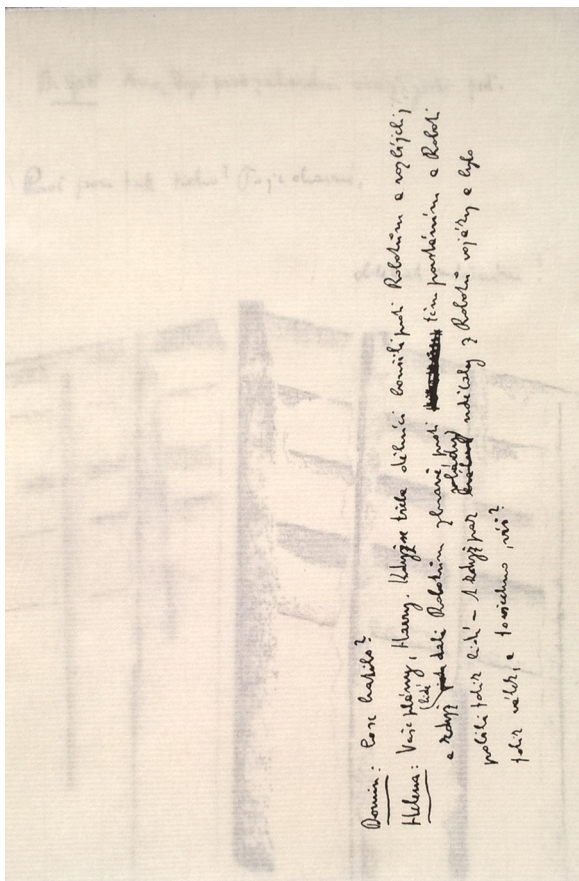 Domin: Co se kazilo?
Helena: Vaše plány, Harry. Když se třeba dělníci bouřili proti Robotům a rozbíjeli,
a když lidé dali Robotům zbraně proti těm povstáním a Roboti
pobili tolik lidí – A když pak vlády nadělaly z Robotů vojáky a bylo
tolik válek, a to všechno, víš?